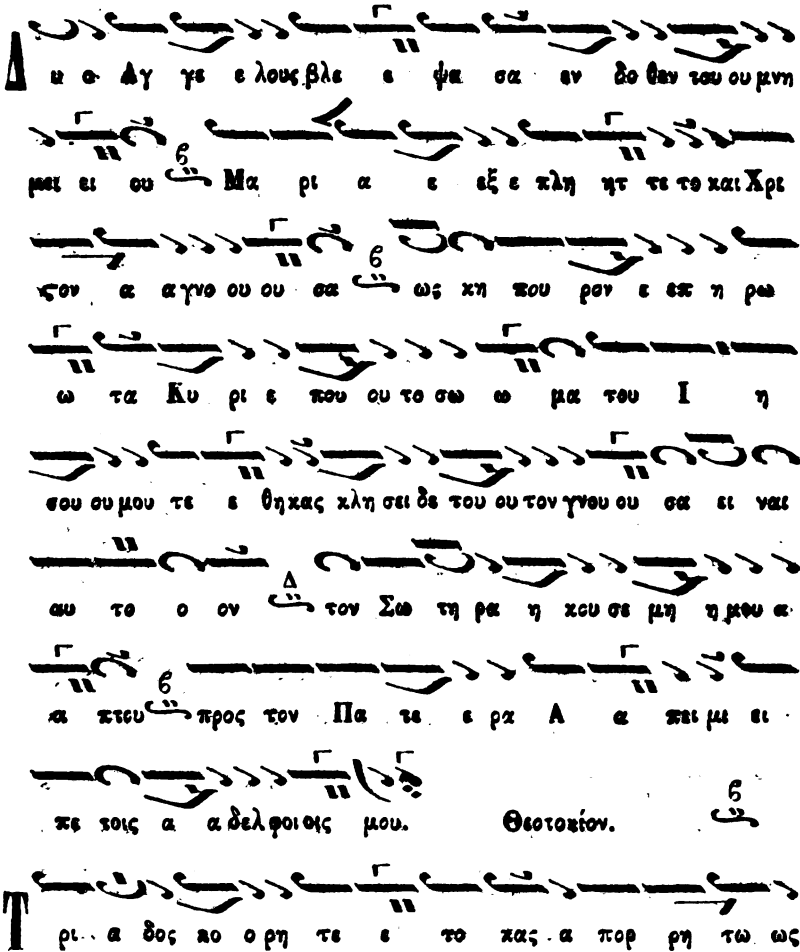 Δ υ ο Αγ γε ε λους βλε ε ψα σα εν δο θεν του ου μνη
μει ει ου Μα ρι α ε εξ ε πλη ητ τε το και Χρι
ςον α α γνο ου ου σα ως κη που ρον ε επ η ρω
ω τα Κυ ρι ε που ου το σω ω μα του Ι η
σου ου μου τε ε θη κας κλη σει δε του ου τον γνου ου σα ει ναι
αυ το ο ον Δ τον Σω τη ρα η κου σε μη η μου α
α πτου προς τον Πα τε ε ρα Α α πει μι ει
πε τοις α α δελ φοι οις μου. Θεοτοκίον.
Τ ρι α δος κο ο ρη τε ε το κας α πορ ρη τω ως